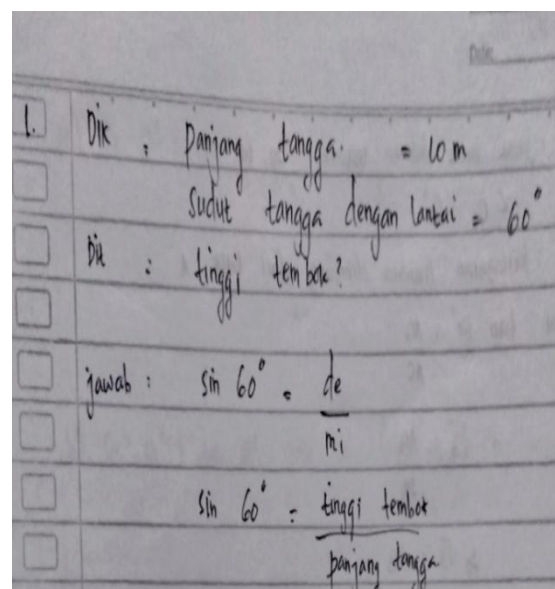 1. Dik : Panjang tangga. = 10 m
Sudut tangga dengan lantai = 60°
Dit : tinggi tembok?
jawab : sin 60° = de
mi
sin 60° = tinggi tembok
panjang tangga